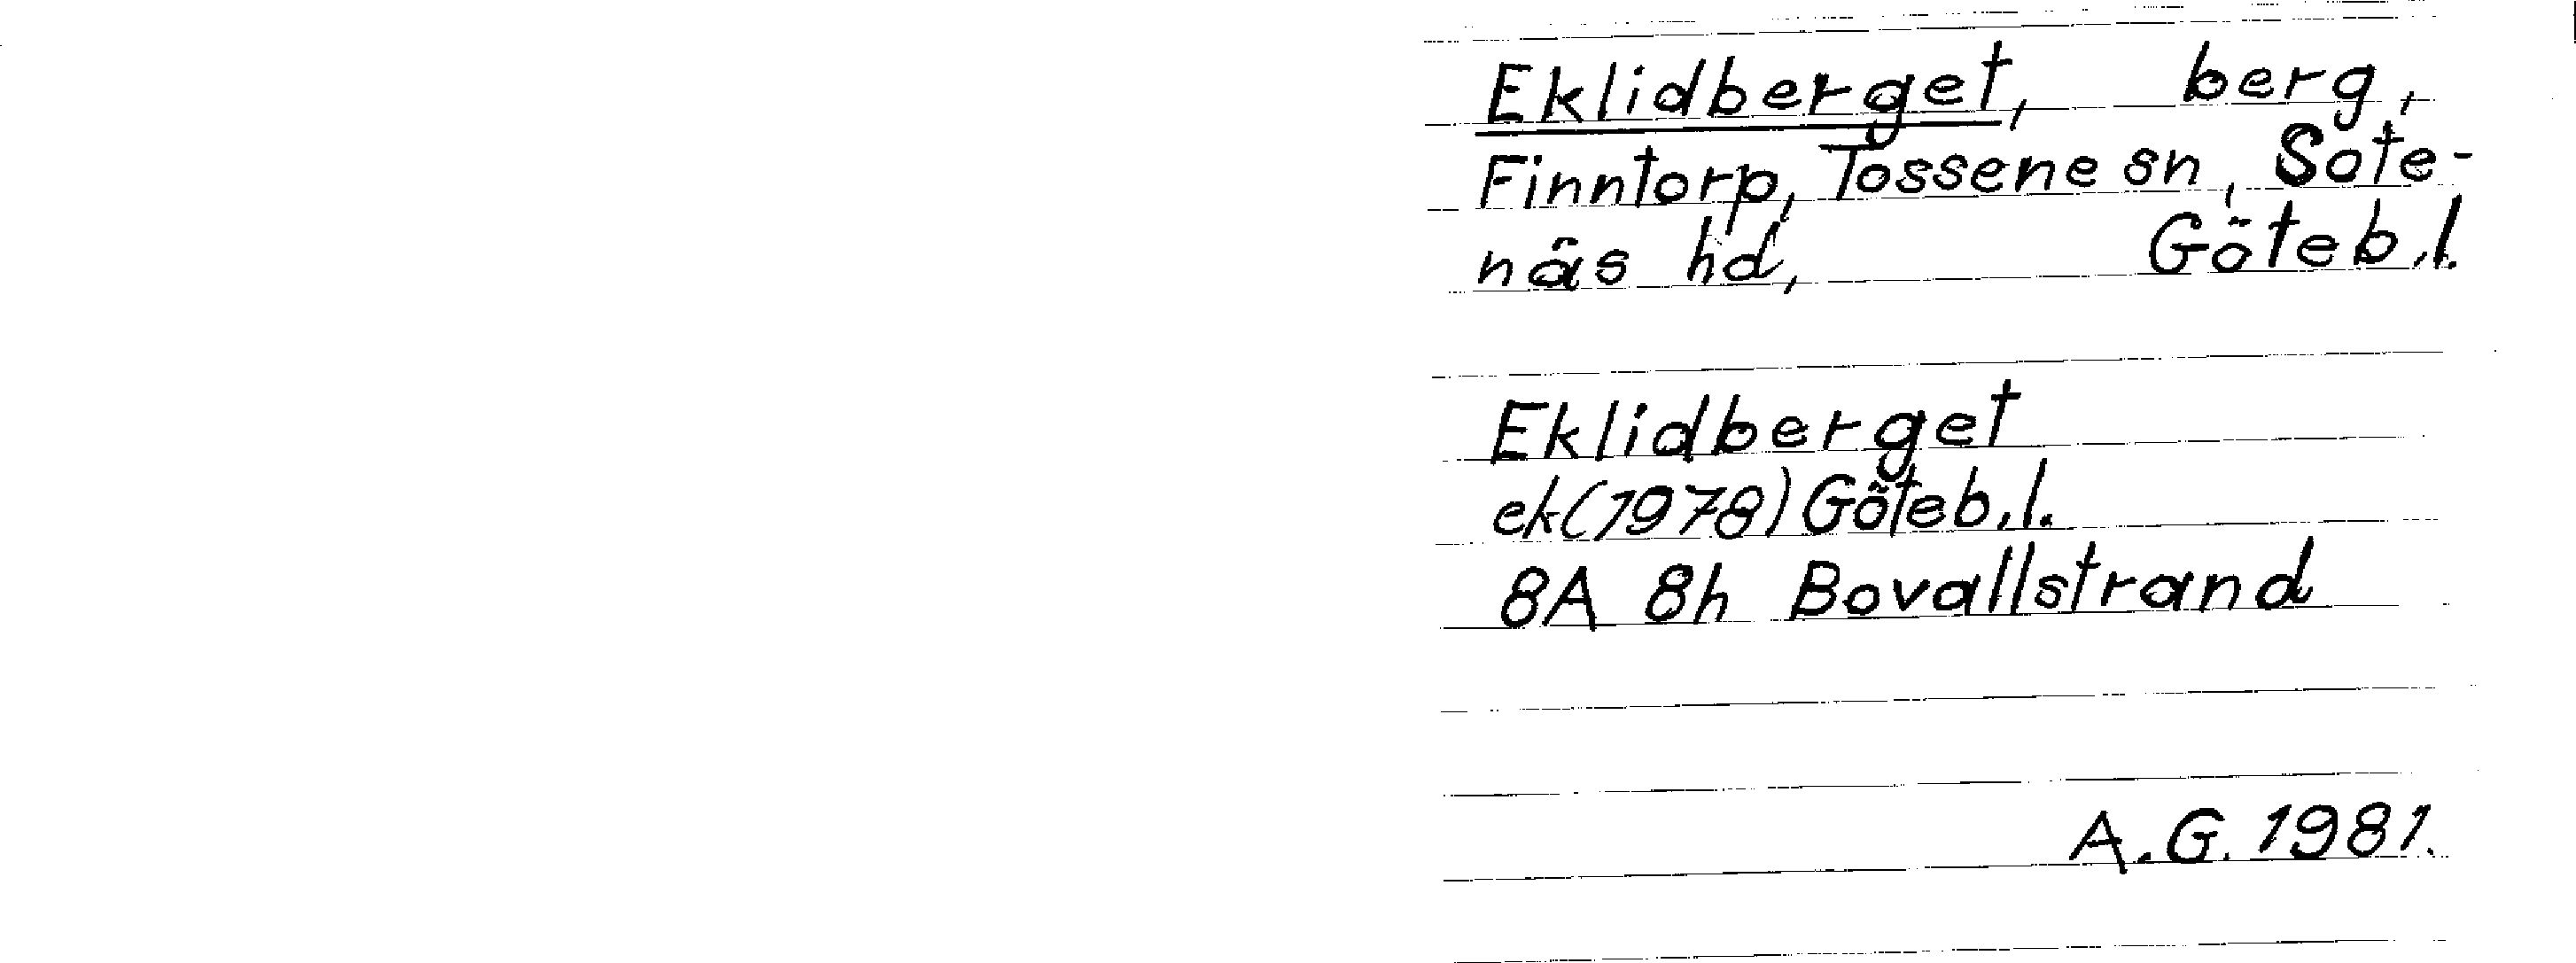 Eklidberget, berg,
Finntorp, Tossene sn, Sote-
näs hd, Göteb.l.
Eklidberget
ek(1978) Göteb.l.
8A 8h Bovallstrand
A.G. 1981.